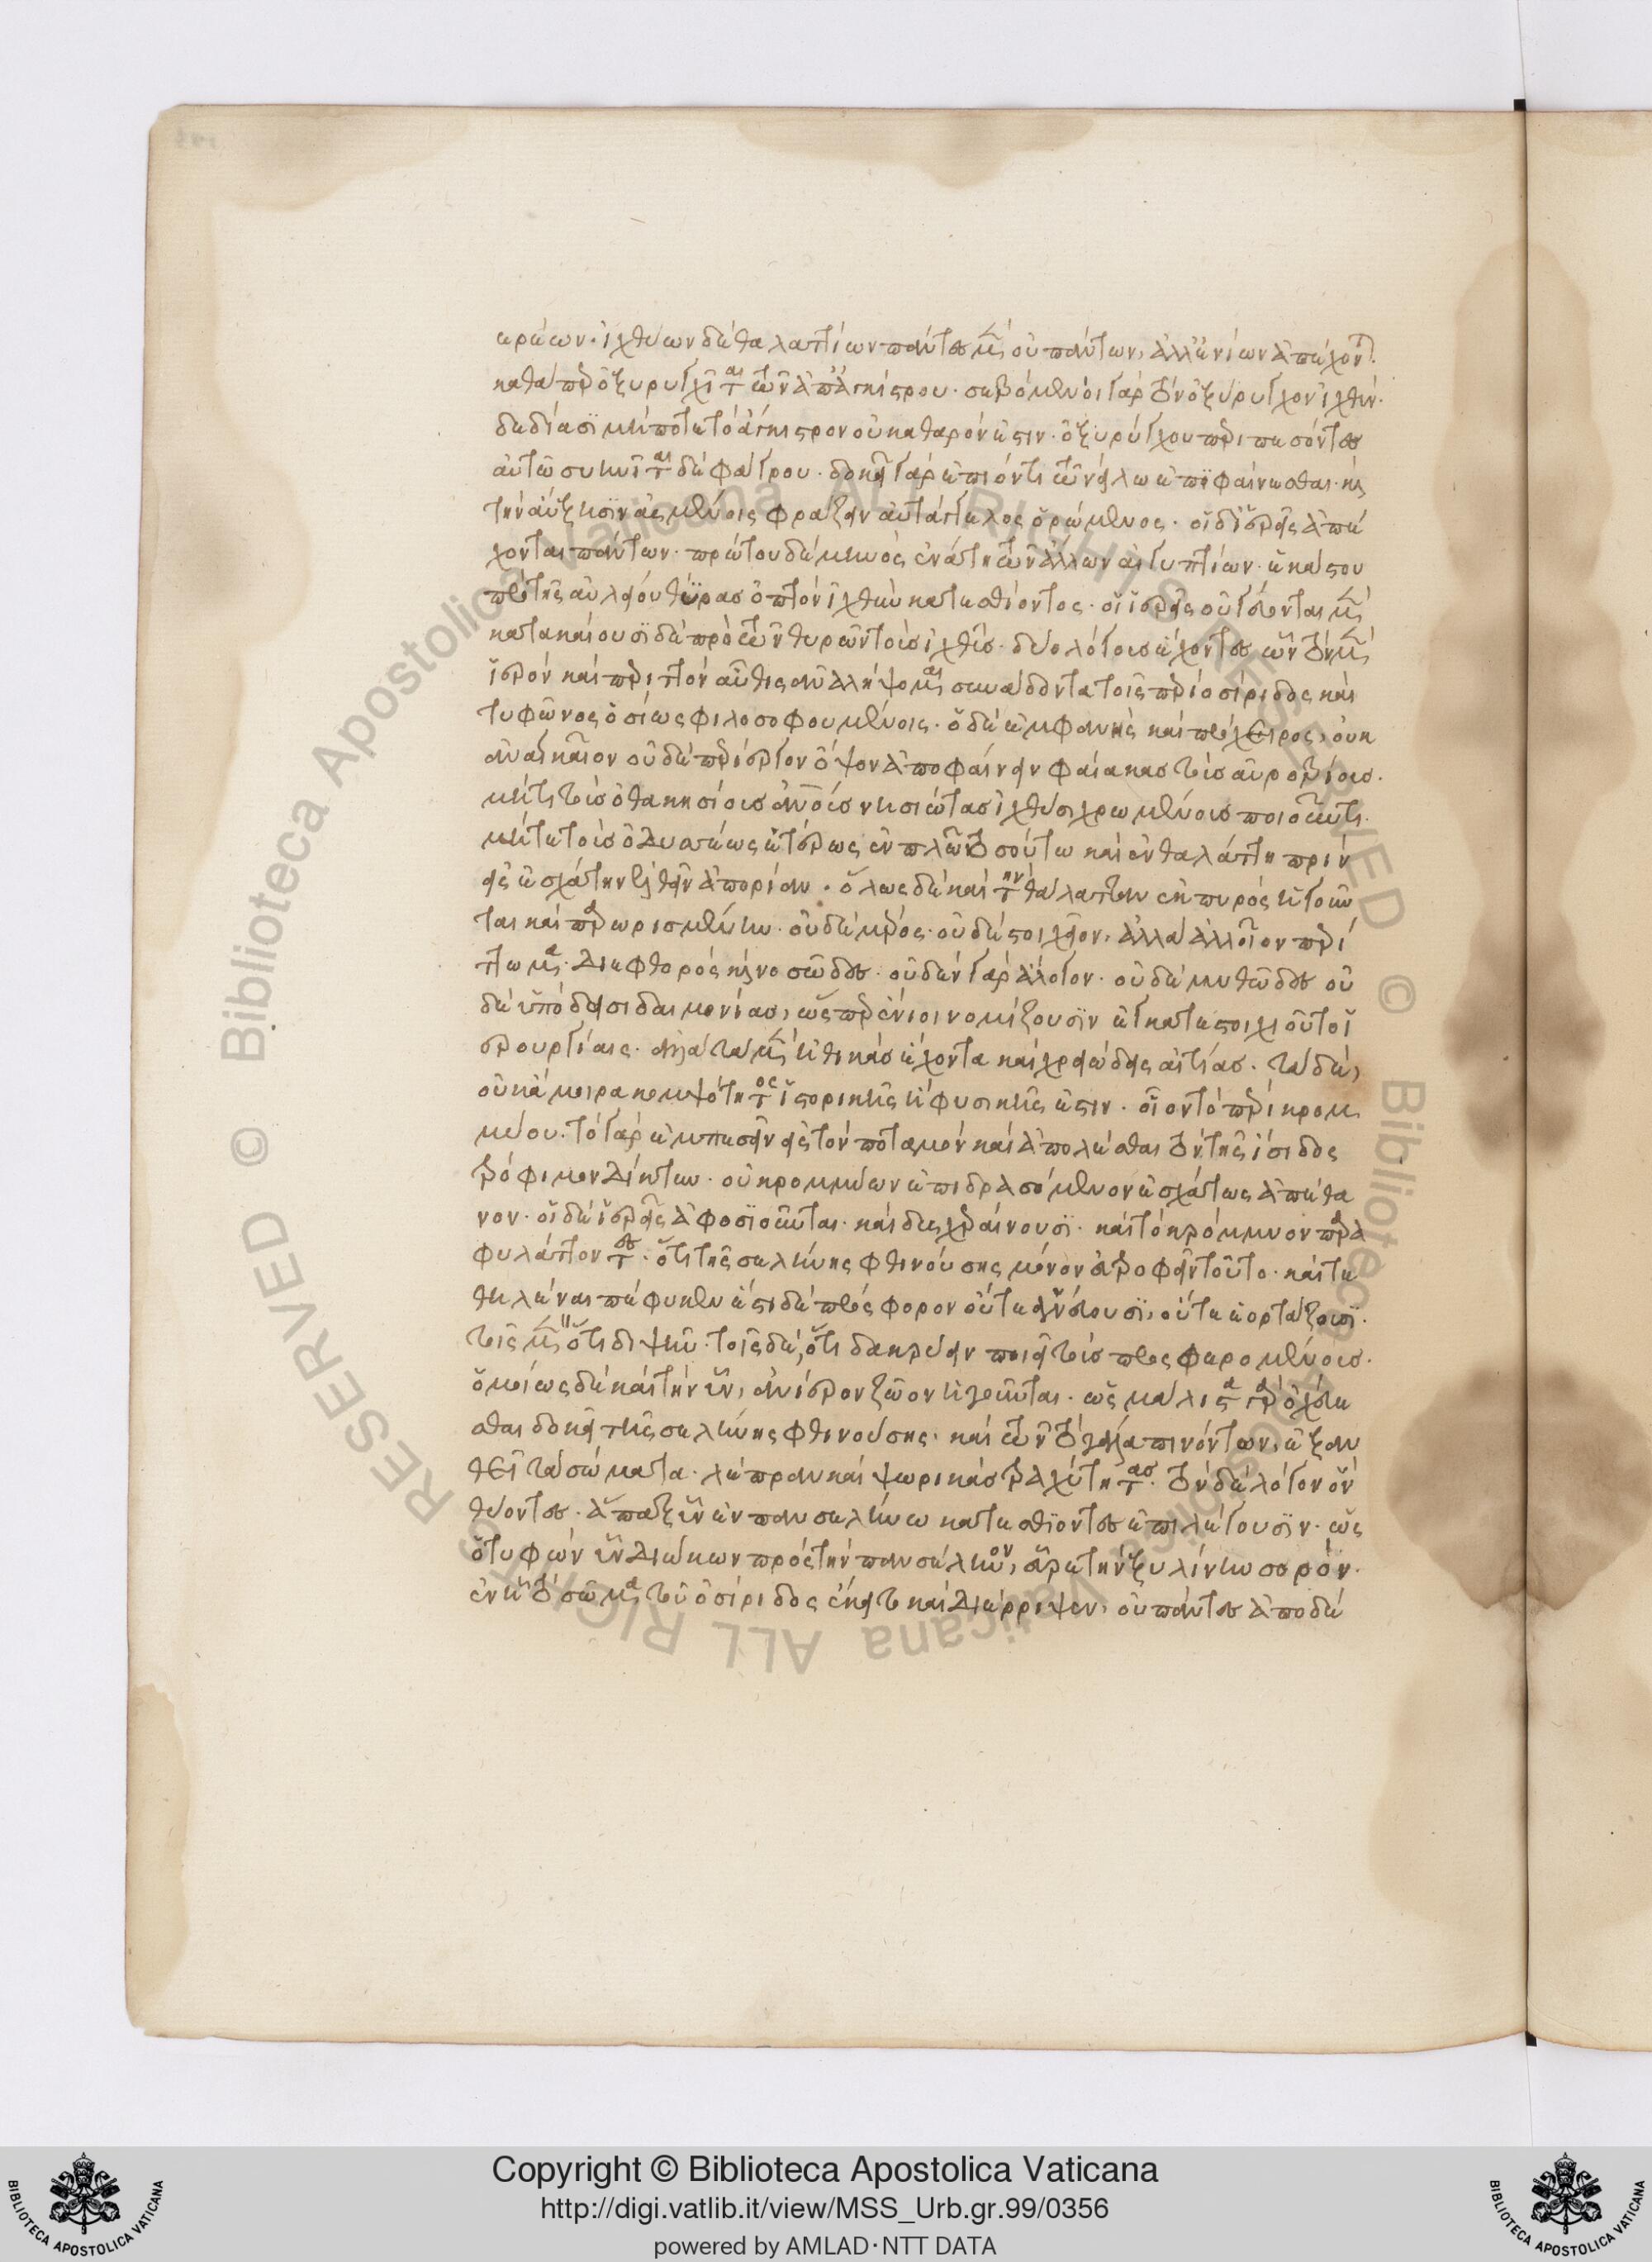 κρεῶν· ἰχθύων δὲ θαλαττίων πάντες μὲν οὐ πάντων, ἀλλ' ἐνίων ἀπέχονται.
καθάπερ ὀξυρυγχῖται τῶν ἀπ' ἀγκίστρου· σεβόμενοι γὰρ τὸν ὀξύρυγχον ἰχθύν·
δεδίασι μήποτε τὸ ἄγκιστρον οὐ καθαρόν ἐστιν· ὀξυρύγχου περιπεσόντος
αὐτῶ συηνῖται δὲ φάγρου· δοκεῖ γὰρ ἐπιόντι τῶ νείλω ἐπιφαίνεσθαι· καὶ
τὴν αὔξησιν ἀσμένοις φράζειν αὐτάγγελος ὁρώμενος· οἱ δ' ἱερεῖς ἀπέ
χονται πάντων· πρώτου δὲ μηνὸς ἐνάτη τῶν ἄλλων αἰγυπτίων· ἑκάστου
πρὸ τῆς αὐλείου θύρας ὀπτὸν ἰχθὺν κατεσθίοντος· οἱ ἱερεῖς οὐ γεύονται μὲν
κατακαίουσι δὲ πρὸ τῶν θυρῶν τοὺς ἰχθῦς· δύο λόγους ἔχοντες ὧν τὸν μὲν
ἱερὸν καὶ περιττὸν αὖθις ἀναλήψομαι συνάδοντα τοῖς περὶ ὀσίριδος καὶ
τυφῶνος ὁσίως φιλοσοφουμένοις· ὁ δὲ ἐμφανὴς καὶ πρόχειρος, οὐκ
ἀναγκαῖον οὐδὲ περίεργον ὄψον ἀποφαίνειν φαίακας τοῖς ἁβροβίοις·
μήτε τοῖς ἰθακησίοις ἀνθρώποις νησιώταις ἰχθύσι χρωμένοις ποιοῦντι·
μήτε τοῖς ὀδυσσέως ἑτέροις ἐν πλῶ τοσούτω καὶ ἐν θαλάττη πρὶν
εἰς ἐσχάτην ἐλθεῖν ἀπορίαν· ὅλως δὲ καὶ τὴν θάλατταν ἐκ πυρὸς ἡγοῦν
ται καὶ παρωρισμένην· οὐδὲ μέρος· οὐδὲ στοιχεῖον, ἀλλὰ ἀλλοῖον περί
ττωμα· διεφθορὸς καὶ νοσῶδες· οὐδὲν γὰρ ἄλογον· οὐδὲ μυθῶδες οὐ
δὲ ὑπὸ δεισιδαιμονίας, ὥσπερ ἔνιοι νομίζουσιν ἐγκατεστοιχειοῦτο ἱ
ερουργίαις· ἀλλὰ τὰ μὲν ἠθικὰς ἔχοντα καὶ χρειώδεις αἰτίας· τὰ δὲ,
οὐκ ἄμοιρα κομψότητος ἱστορικῆς ἢ φυσικῆς ἐστιν· οἷον τὸ περὶ κρομ
μύου· τὸ γὰρ ἐμπεσεῖν εἰς τὸν ποταμὸν καὶ ἀπολέσθαι τὸν τῆς ἴσιδος
τρόφιμον δίκτυν· οὐ κρομμύων ἐπιδρασσόμενον ἐσχάτως ἀπίθα
νον· οἱ δὲ ἱερεῖς ἀφοσιοῦνται· καὶ δυσχεραίνουσι· καὶ τὸ κρόμμυον παρα
φυλάττοντες· ὅτι τῆς σελήνης φθινούσης μόνον εὐτροφεῖν τοῦτο· καὶ τε
θηλέναι πέφυκεν ἔστι δὲ πρόσφορον οὔτε ἁγνεύουσι, οὔτε ἑορτάζουσι·
τοῖς μὲν ὅτι διψῆν· τοῖς δὲ, ὅτι δακρύειν ποιεῖ τοὺς προσφερομένους·
ὁμοίως δὲ καὶ τὴν ὗν, ἀνίερον ζῶον ἡγοῦνται· ὡς μάλιστα γὰρ ὀχεύε
σθαι δοκεῖ τῆς σελήνης φθινούσης· καὶ τῶν τὸ γάλα πινόντων, ἐξαν
θεῖ τὰ σώματα· λέπραν καὶ ψωρικὰς τραχύτητας· τὸν δὲ λόγον ὃν
θύοντες· ἅπαξ ὗν ἐν πανσελήνω κατεσθίοντες ἐπιλέγουσιν· ὡς
ὁ τυφὼν ὗν διώκων πρὸς τὴν πανσέληνον, εὗρε τὴν ξυλίνην σορόν·
ἐν ἧ τὸ σῶμα τοῦ ὀσίριδος ἔκειτο καὶ διέρριψεν, οὐ πάντες ἀποδέ
Copyright © Biblioteca Apostolica Vaticana
http://digi.vatlib.it/view/MSS_Urb.gr.99/0356
powered by AMLAD·NTT DATA